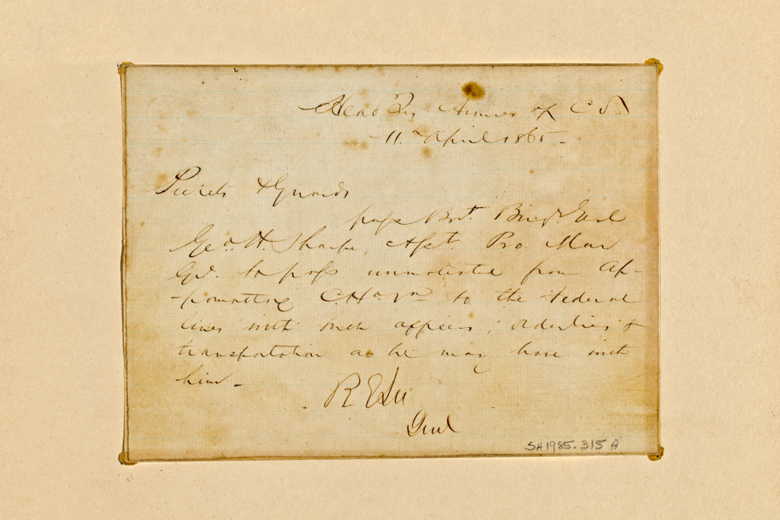 Head Qrs Armies of C S.
11th April 1865 -
Pickets & Guards
pass Bvt. Brig. Genl
Geo. H. Sharpe, Asst Pro. Mar
Gel. to pass unmolested from Ap-
-pomattox C.H. Va to the Federal
lines with such officers, orderlies &
transportation as he may have with
him -
R E Lee
Genl
SH1985.315 A